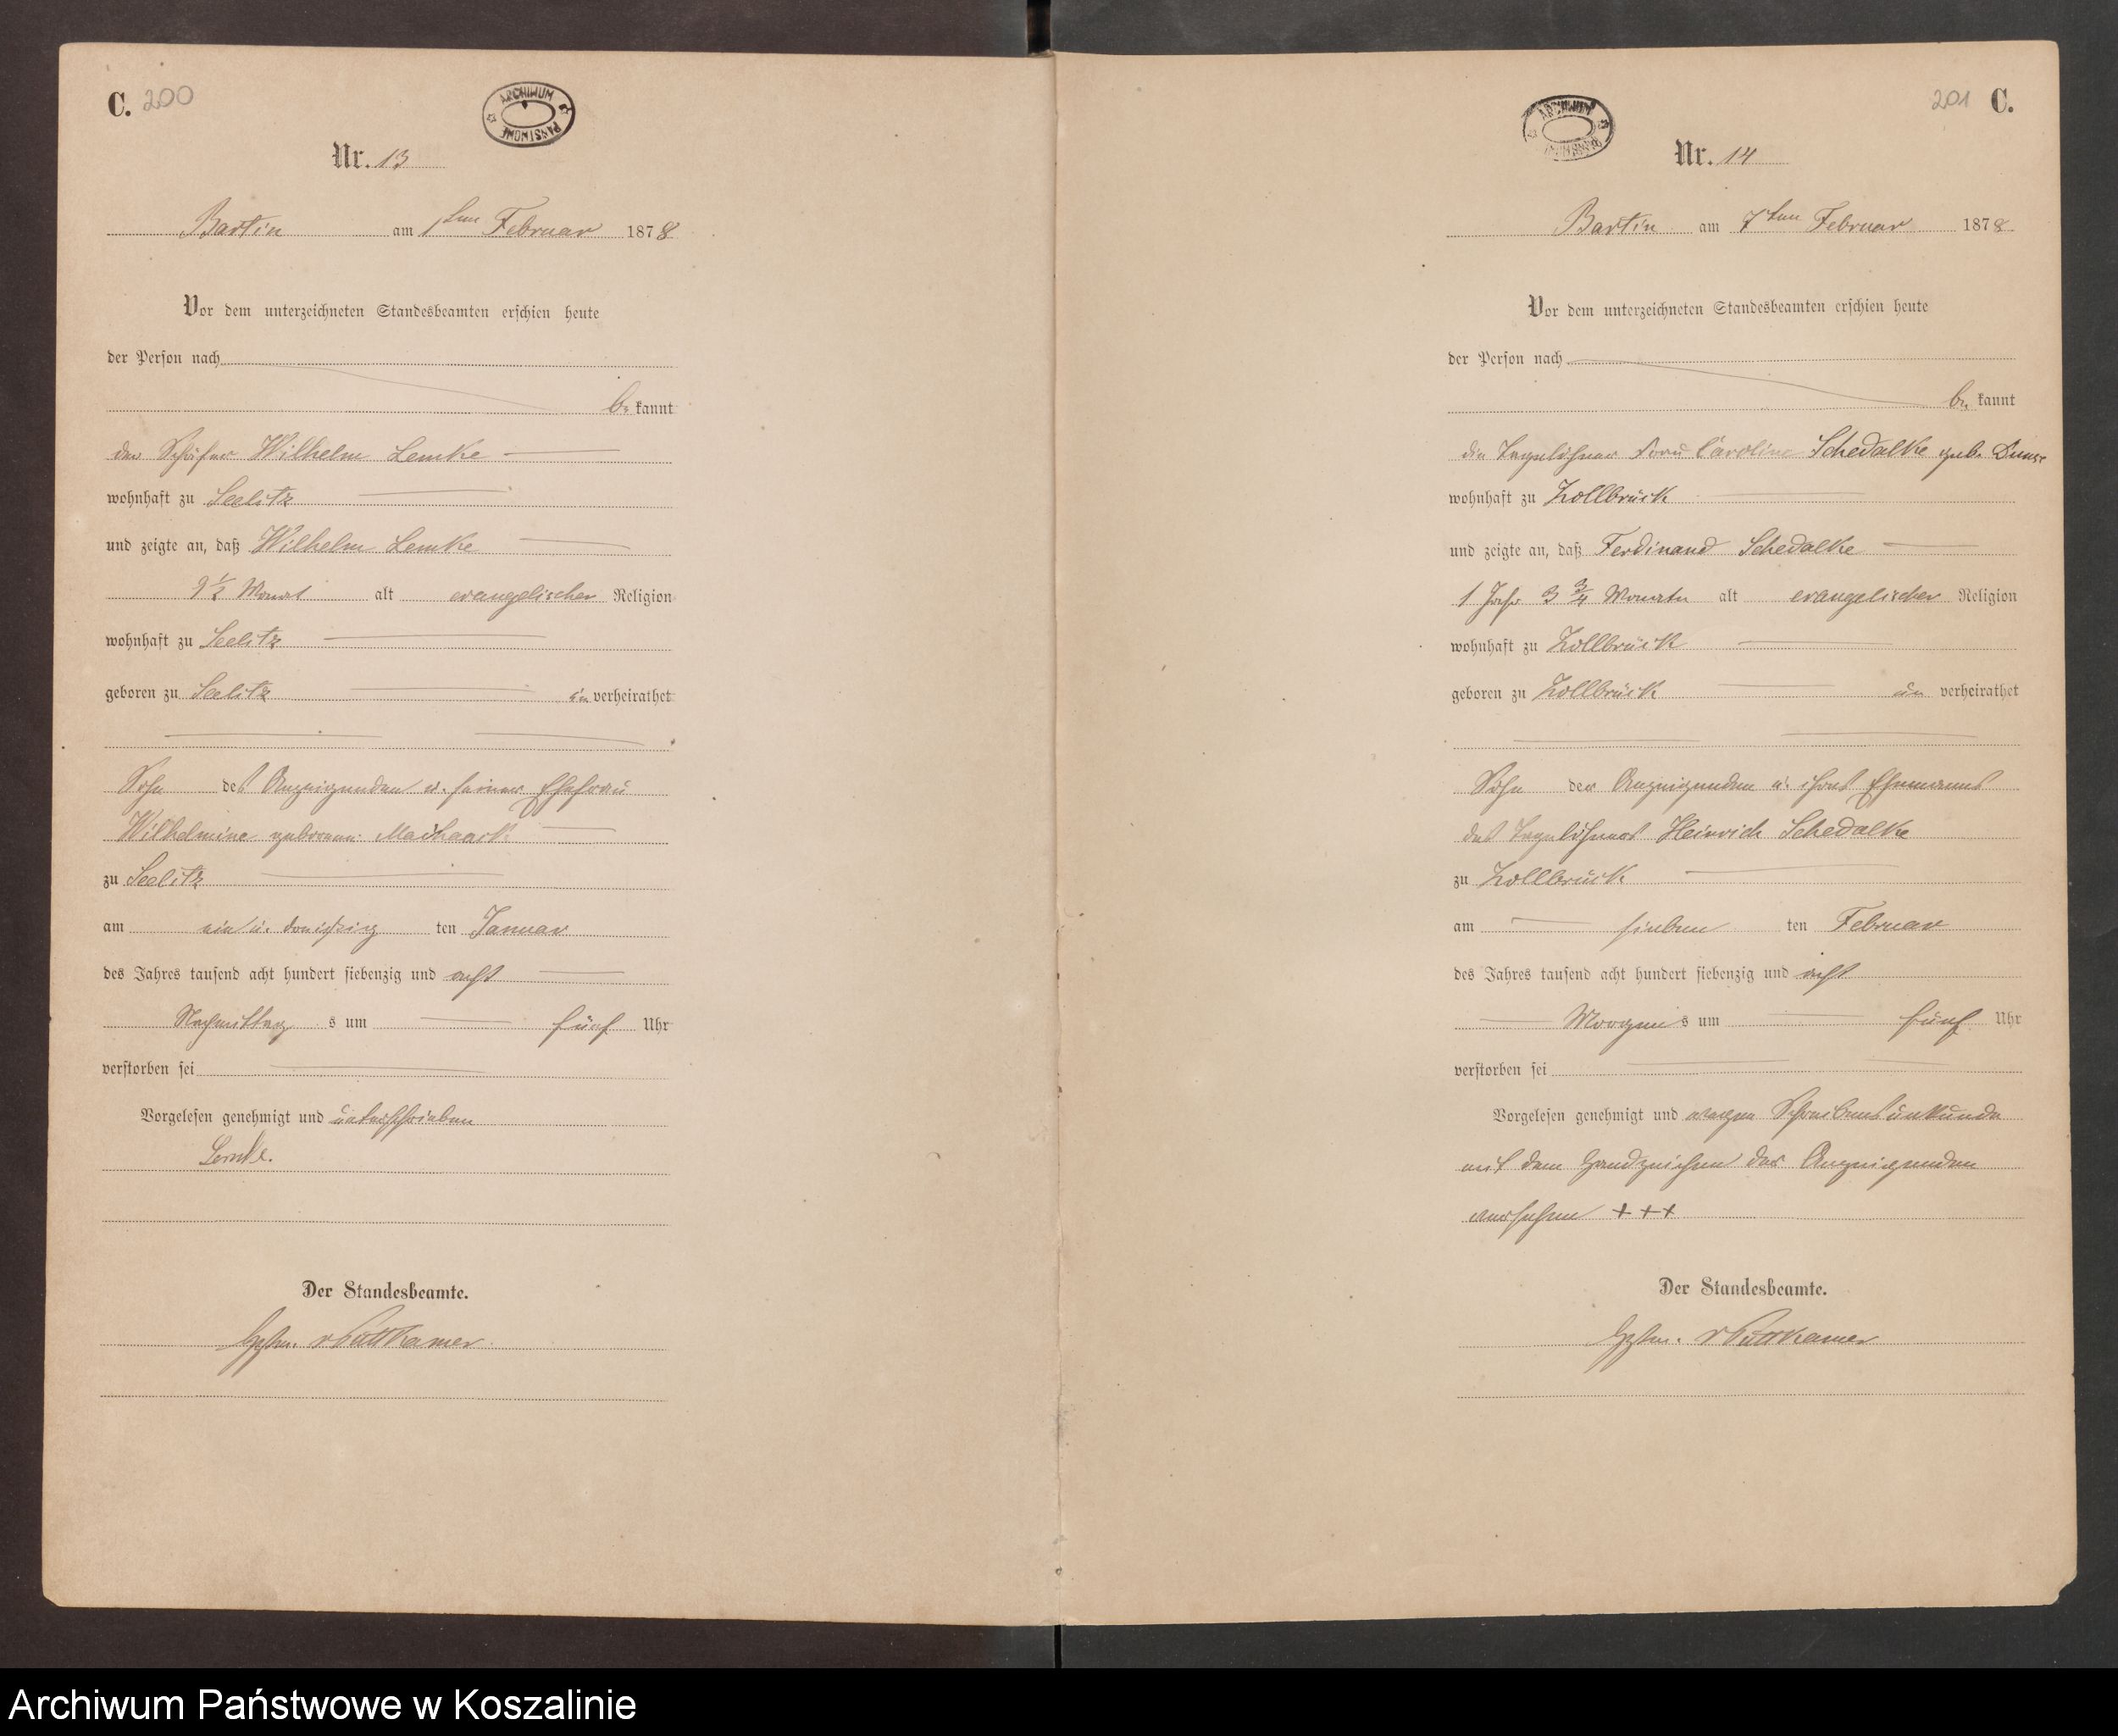 C. 200
ARCHIWUM PAŃSTWOWE
Nr. 13
Bartin am 1ten Februar 1878
Vor dem unterzeichneten Standesbeamten erschien heute
der Person nach
be kannt
der Schäfer Wilhelm Lemke
wohnhaft zu Seelitz
und zeigte an, daß Wilhelm Lemke
½ Monat alt evangelischer Religion
wohnhaft zu Seelitz
geboren zu Seelitz un verheirathet
Sohn des Anzeigenden u. seiner Ehefrau
Wilhelmine geborene
zu Seelitz
am ein u. dreißig ten Januar
des Jahres tausend acht hundert siebenzig und acht
Nachmittag s um fünf Uhr
verstorben sei
Vorgelesen genehmigt und unterschrieben
Lemke.
Der Standesbeamte.
v Puttkamer
201 C.
ARCHIWUM PAŃSTWOWE
Nr. 14
Bartin am 7ten Februar 1878
Vor dem unterzeichneten Standesbeamten erschien heute
der Person nach
be kannt
die Tagelöhner Frau Caroline Schedalke geb.
wohnhaft zu Zollbrück
und zeigte an, daß Ferdinand Schedalke
1 Jahr 3 ¾ Monate alt evangelischer Religion
wohnhaft zu Zollbrück
geboren zu Zollbrück un verheirathet
Sohn der Anzeigenden u. ihres Ehemannes
des Tagelöhners Heinrich Schedalke
zu Zollbrück
am sieben ten Februar
des Jahres tausend acht hundert siebenzig und acht
Morgens um fünf Uhr
verstorben sei
Vorgelesen genehmigt und wegen Schreibensunkunde
mit dem Handzeichen der Anzeigenden
versehen +++
Der Standesbeamte.
v Puttkamer
Archiwum Państwowe w Koszalinie